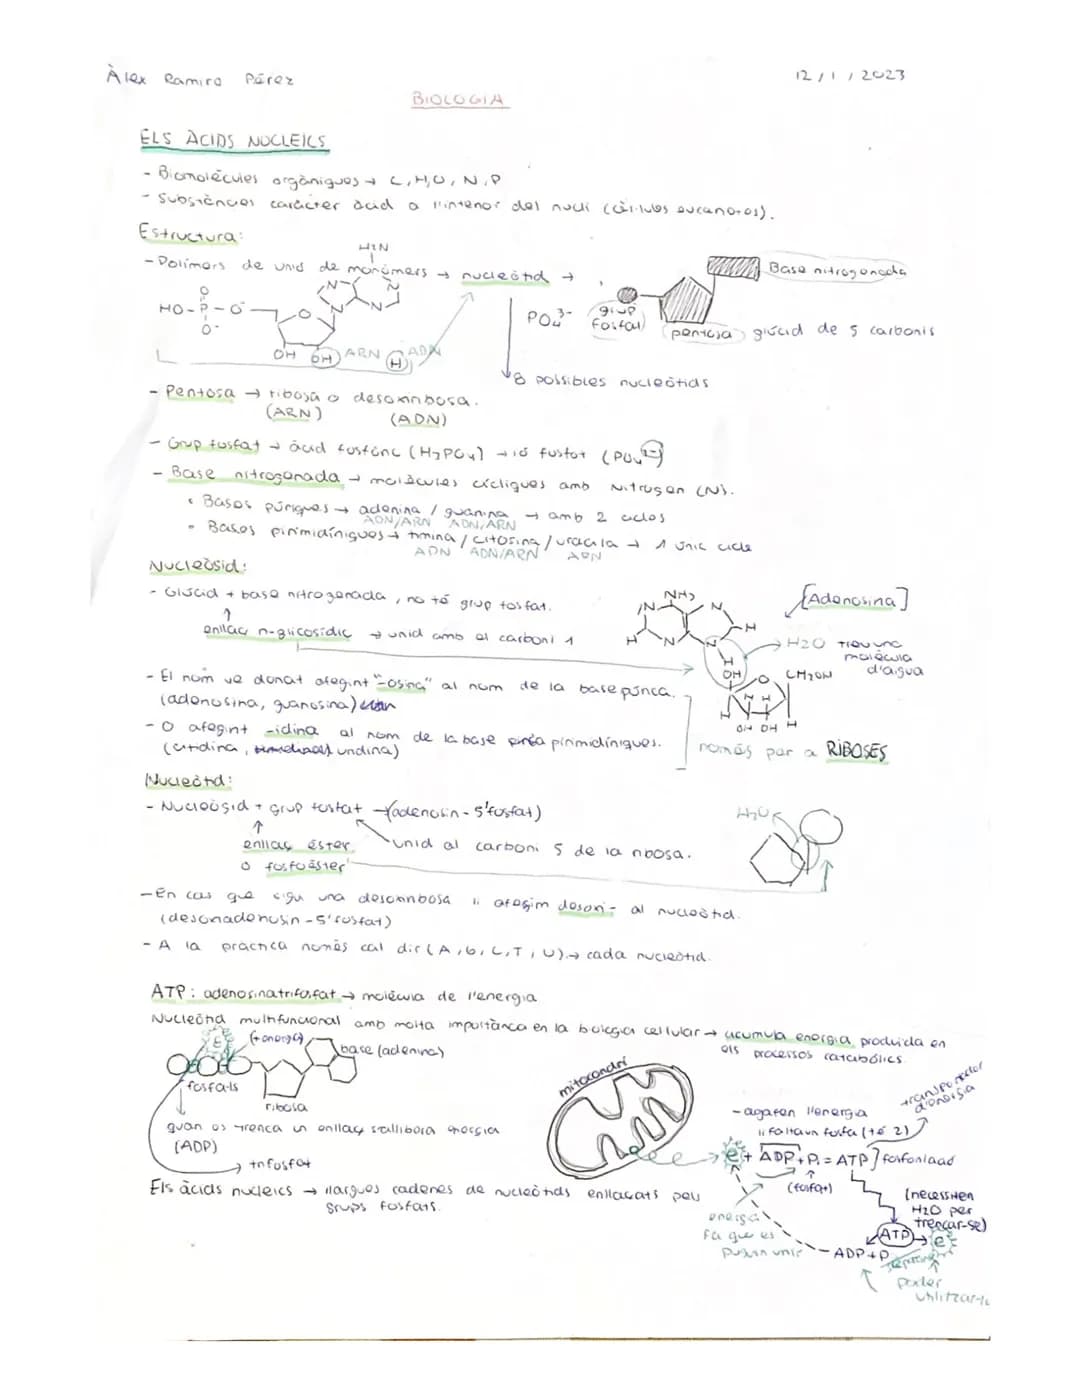 Àlex Ramiro Pérez
12/1/2023
BIOLOGIA
ELS ÀCIDS NUCLEICS
- Biomolècules orgàniques → C, H, O, N, P
- Substàncies caràcter àcid a l'interior del nucli (cèl·lules eucariotes).
Estructura:
- Polímers de unió de monòmers → nucleòtid →
H2N
N
N
N
N
HO-P-O
O
O-
O
OH OH ARN H ADN
PO4 3-
grup fosfat
Base nitrogenada
pentosa glúcid de 5 carbonis
8 possibles nucleòtids
- Pentosa → ribosa o desoxirribosa.
(ARN) (ADN)
- Grup fosfat → àcid fosfòric (H3PO4) → ió fosfat (PO4 3-)
- Base nitrogenada → molècules cícliques amb Nitrogen (N).
• Bases púriques → adenina / guanina → amb 2 cicles
ADN/ARN ADN/ARN
• Bases pirimidíniques → timina / citosina / uracila → 1 únic cicle
ADN ADN/ARN ARN
Nucleòsid:
- Glúcid + base nitrogenada, no té grup fosfat.
enllaç n-glicosídic → unió amb el carboni 1
NH2
N
N
H
N
N
H
H
OH
O
CH2OH
H H
H
OH OH
H
[Adenosina]
H2O Treu una
molècula
d'aigua
- El nom ve donat afegint "-osina" al nom de la base púrica.
(adenosina, guanosina)
- O afegint -idina al nom de la base pirimidíniques.
(citidina, uridina)
només per a RIBOSES
Nucleòtid:
- Nucleòsid + grup fosfat → (adenosin-5'fosfat)
enllaç éster
o fosfoéster
unió al carboni 5 de la ribosa.
H2O
- En cas que sigui una desoxirribosa li afegim desoxi- al nucleòtid.
(desoxiadenosin-5'fosfat)
- A la pràctica només cal dir (A, G, C, T, U) → cada nucleòtid.
ATP: adenosinatrifosfat → molècula de l'energia
Nucleòtid multifuncional amb molta importància en la biologia cel·lular → acumula energia produïda en
els processos catabòlics.
E
(+ energia)
base (adenina)
fosfats
ribosa
quan es trenca un enllaç s'allibera energia
(ADP)
trifosfat
mitocondri
- agafen l'energia
li falta un fosfat (té 2)
transportador
d'energia
e + ADP + Pi = ATP] fosforilació
(fosfat)
energia
fa que es
puguin unir
(necessiten
H2O per
trencar-se)
ATP → e
ADP + P
poder
utilitzar-la
Els àcids nucleics → llargues cadenes de nucleòtids enllaçats pels
grups fosfats.